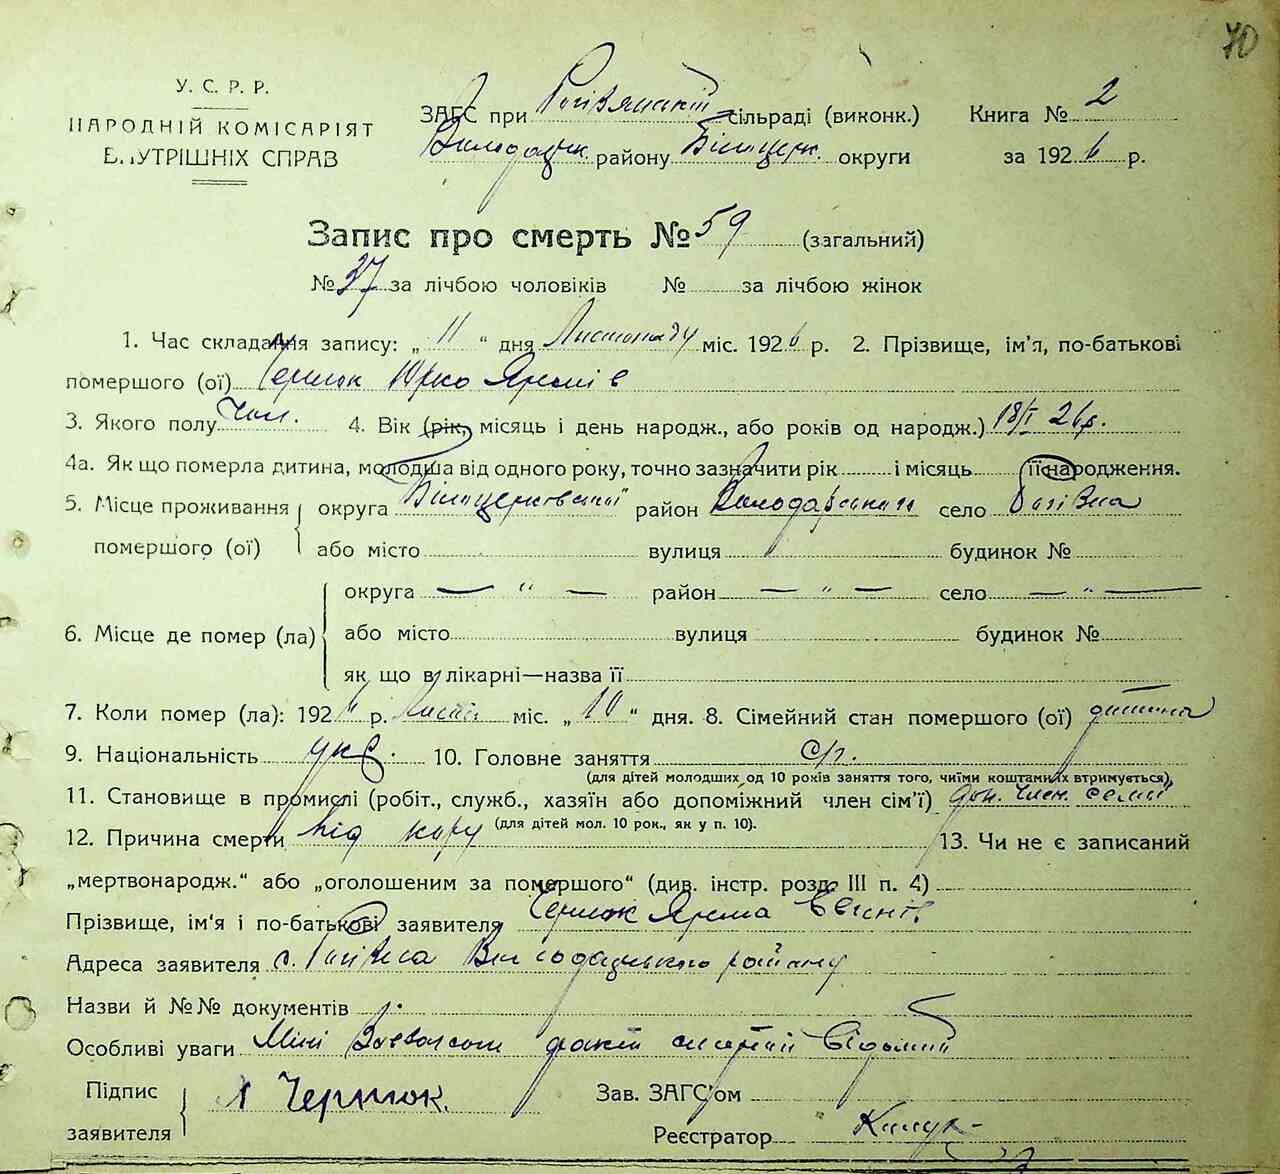 70
У. С. Р. Р.
НАРОДНІЙ КОМІСАРІЯТ
ВНУТРІШНІХ СПРАВ
ЗАГС при сільраді (виконк.)
району Білоцерк. округи
Книга № 2
за 1926 р.
Запис про смерть № 59 (загальний)
№ 37 за лічбою чоловіків № за лічбою жінок
1. Час складання запису: „ 11 “ дня Листопаду міс. 1926 р. 2. Прізвище, ім’я, по-батькові
помершого (ої) Юрко Яремів
3. Якого полу Чол. 4. Вік (рік, місяць і день народж., або років од народж.) 18/I 26р.
4а. Як що померла дитина, молодша від одного року, точно зазначити рік і місяць її народження.
5. Місце проживання помершого (ої) округа Білоцерковської район Володарського село
або місто вулиця будинок №
6. Місце де помер (ла) округа — „ — район — „ — село — „ —
або місто вулиця будинок №
як що в лікарні—назва її
7. Коли помер (ла): 1926 р. Лист. міс. „ 10 “ дня. 8. Сімейний стан помершого (ої) дитина
9. Національність укр. 10. Головне заняття с/г.
(для дітей молодших од 10 років заняття того, чиїми коштами їх втримується),
11. Становище в промислі (робіт., служб., хазяїн або допоміжний член сім’ї) доп. член. семії
(для дітей мол. 10 рок., як у п. 10).
12. Причина смерти від кору 13. Чи не є записаний
„мертвонародж.“ або „оголошеним за помершого“ (див. інстр. розд. III п. 4)
Прізвище, ім’я і по-батькові заявителя Ярема
Адреса заявителя с. району
Назви й №№ документів
Особливі уваги Мені факт смерти відомий
Підпис заявителя
Зав. ЗАГС’ом
Реєстратор